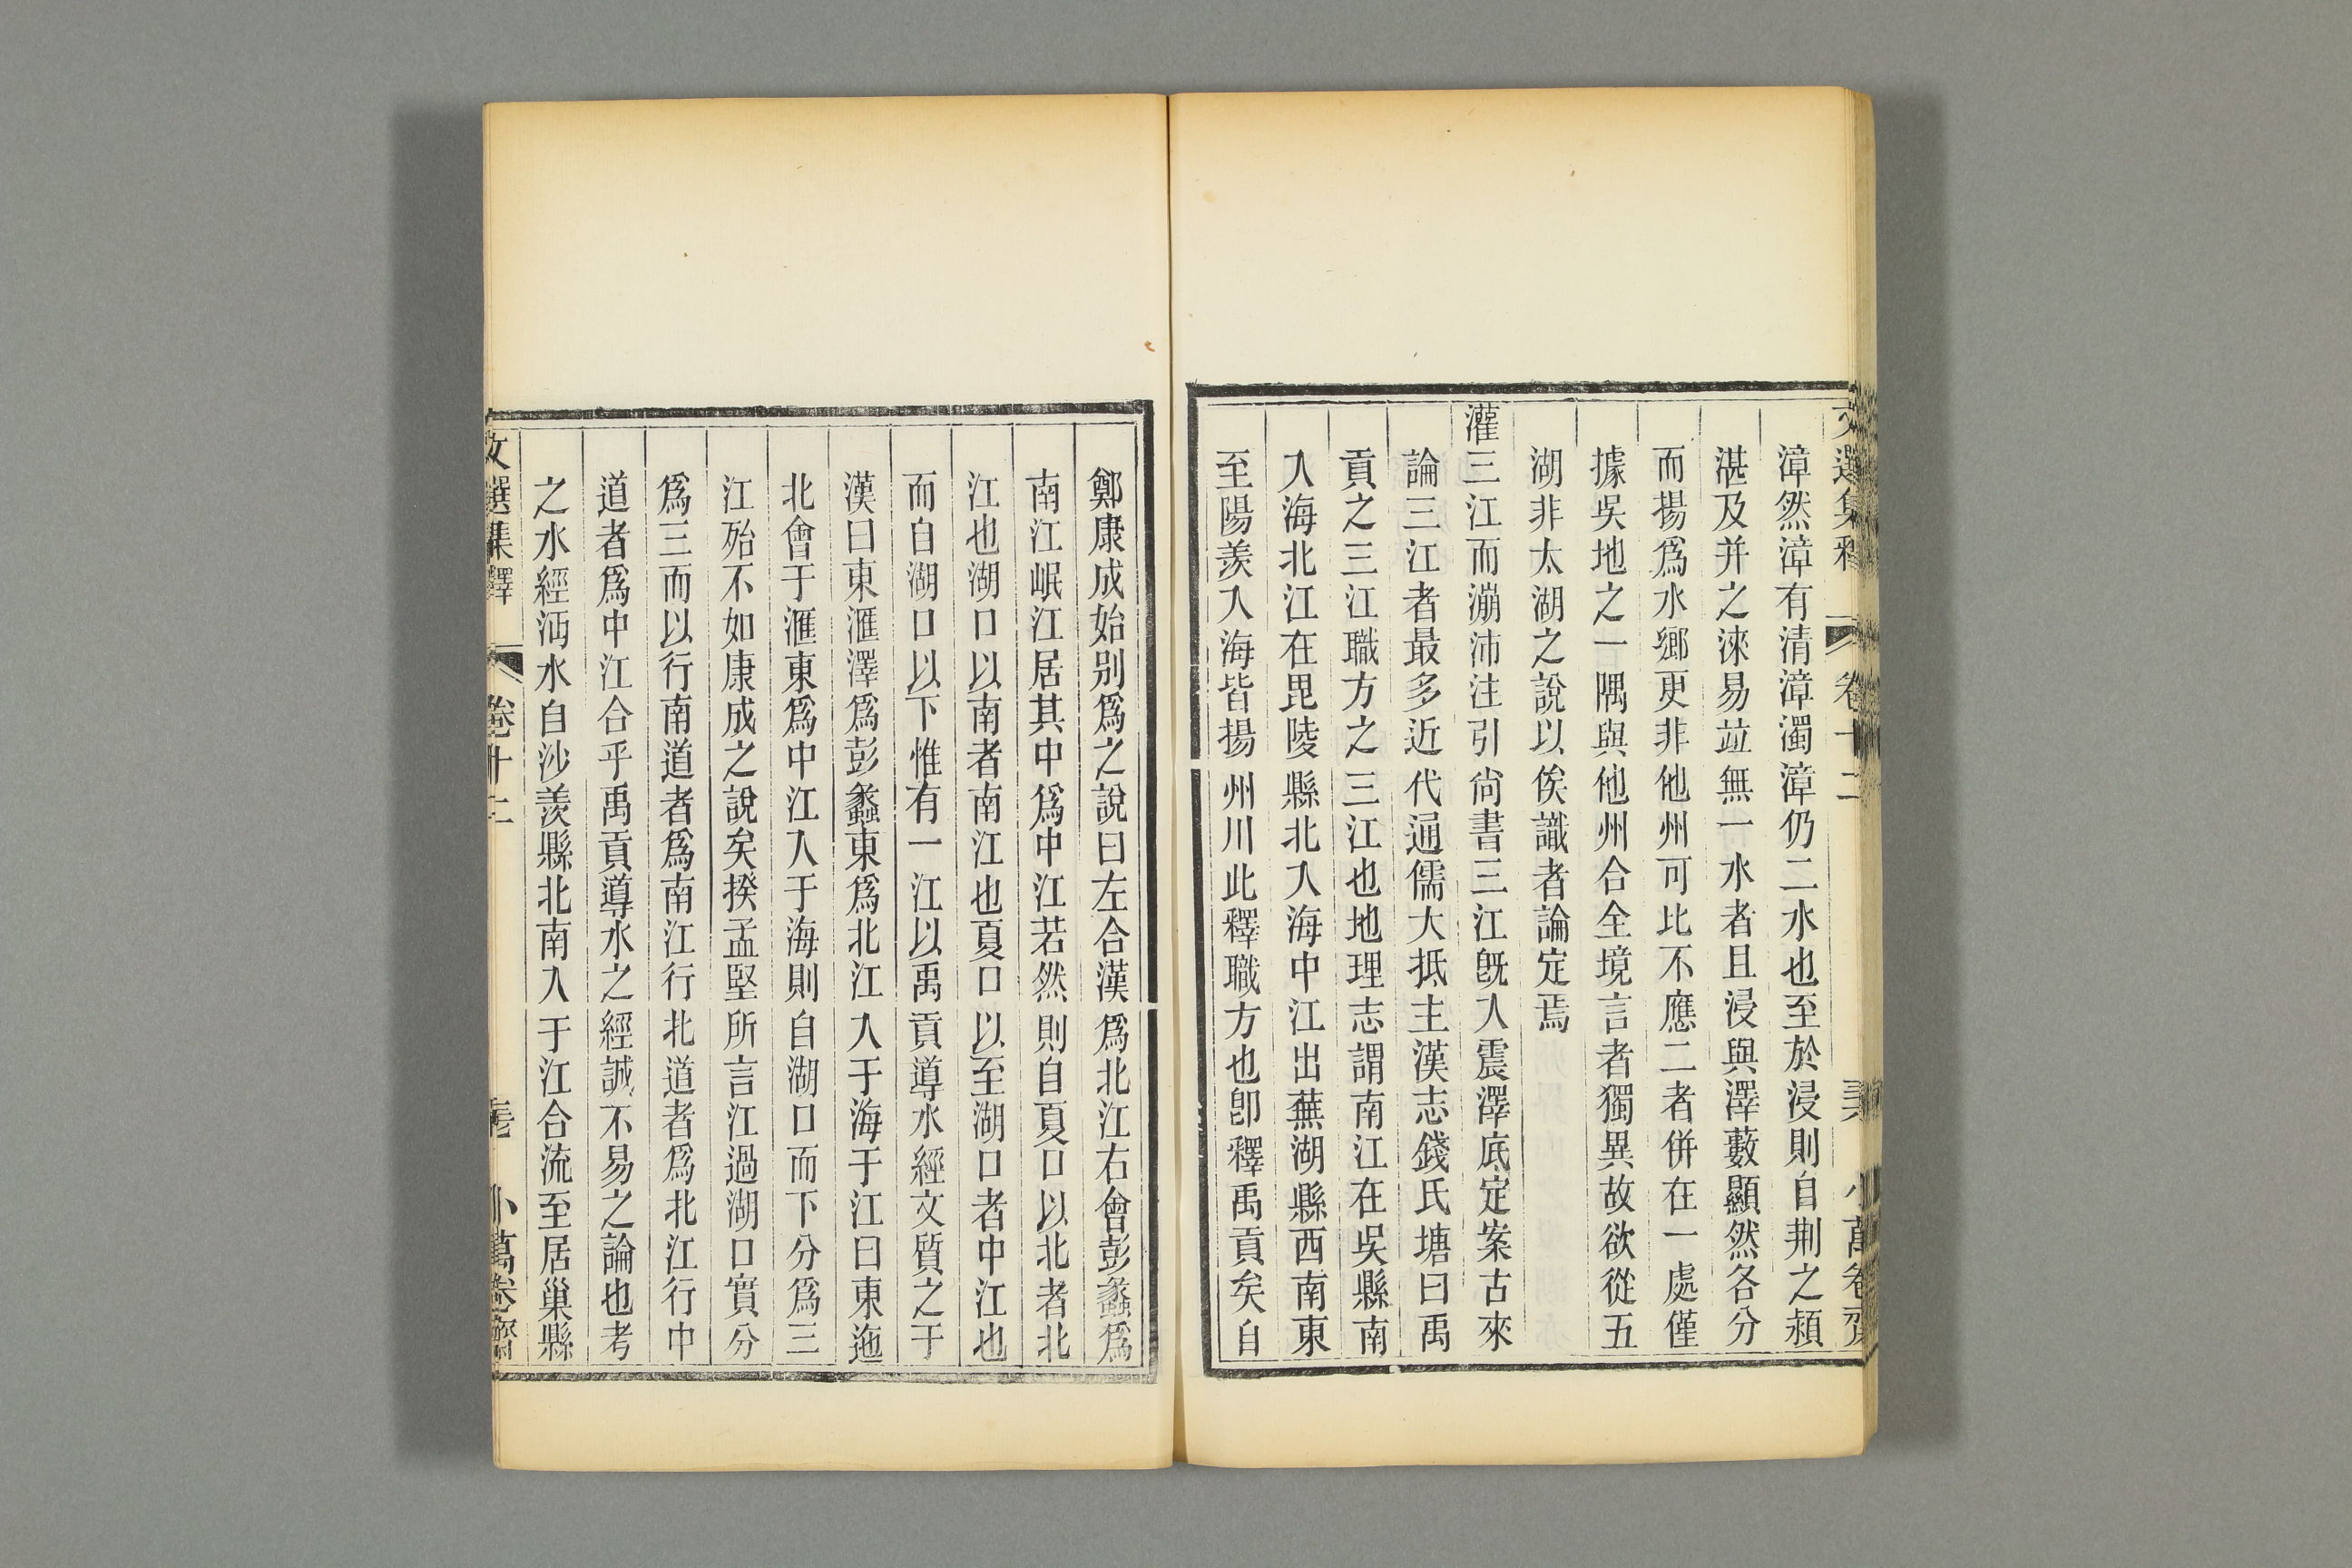 文選集釋 卷十二 小萬卷齋
漳然漳有清漳濁漳仍二水也至於浸則自荆之潁
湛及并之淶易竝無一水者且浸與澤藪顯然各分
而揚爲水鄉更非他州可比不應二者併在一處僅
據吳地之一隅與他州合全境言者獨異故欲從五
湖非太湖之說以俟識者論定焉
灌三江而漰沛注引尙書三江旣入震澤底定案古來
論三江者最多近代通儒大抵主漢志錢氏塘曰禹
貢之三江職方之三江也地理志謂南江在吳縣南
入海北江在毘陵縣北入海中江出蕪湖縣西南東
至陽羨入海皆揚州川此釋職方也卽釋禹貢矣自
鄭康成始別爲之說曰左合漢爲北江右會彭蠡爲
南江岷江居其中爲中江若然則自夏口以北者北
江也湖口以南者南江也夏口以至湖口者中江也
而自湖口以下惟有一江以禹貢導水經文質之于
漢曰東滙澤爲彭蠡東爲北江入于海于江曰東迆
北會于滙東爲中江入于海則自湖口而下分爲三
江殆不如康成之說矣揆孟堅所言江過湖口實分
爲三而以行南道者爲南江行北道者爲北江行中
道者爲中江合乎禹貢導水之經誠不易之論也考
之水經沔水自沙羨縣北南入于江合流至居巢縣
文選集釋 卷十二 小萬卷齋